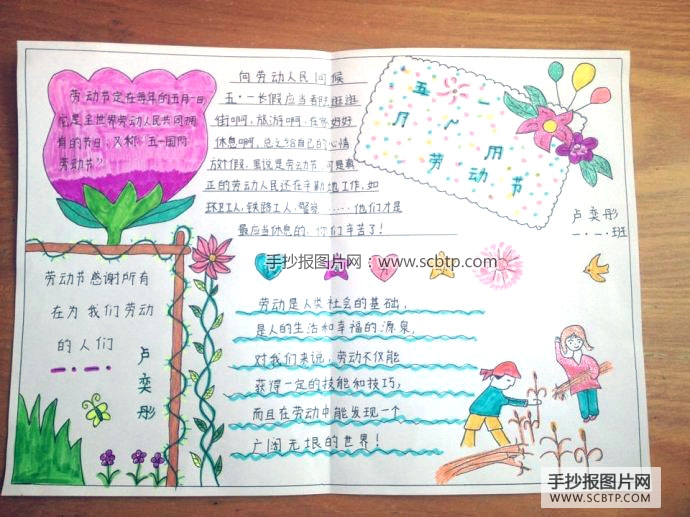 劳动节定在每年的五月一日
它是全世界劳动人民共同拥
有的节日,又称"五一国际
劳动节"。
向劳动人民问候
五·一长假应当看时逛逛
街啊,旅游啊,在家好好
休息啊,总之给自己的心情
放个假,虽说是劳动节,可是真
正的劳动人民还在辛勤地工作,如
环卫工人,铁路工人,警察……他们才是
最应当休息的,你们辛苦了!
五 一
劳动节
卢奕彤
一.一.班
手抄报图片网:www.scbtp.com
劳动节感谢所有
在为我们劳动
的人们
卢奕彤
劳动是人类社会的基础,
是人的生活和幸福的源泉,
对我们来说,劳动不仅能
获得一定的技能和技巧,
而且在劳动中能发现一个
广阔无垠的世界!
手抄报图片网
WWW.SCBTP.COM